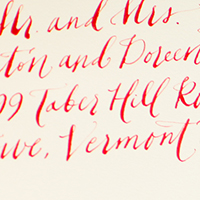 Mr. and Mrs.
ton and Doreen
99 Taber Hill R
we, Vermont